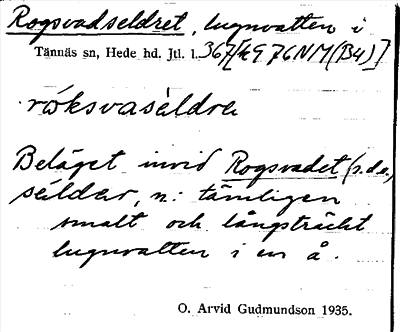 Rogsvadseldret, lugnvatten i
Tännäs sn, Hede hd. Jtl. l. 367 [kG 76NM(B4)]
röksvaseldre
Beläget invid Rogsvadet (s.d.o.,
selder, n: tämligen
smalt och långsträckt
lugnvatten i en å.
O. Arvid Gudmundson 1935.